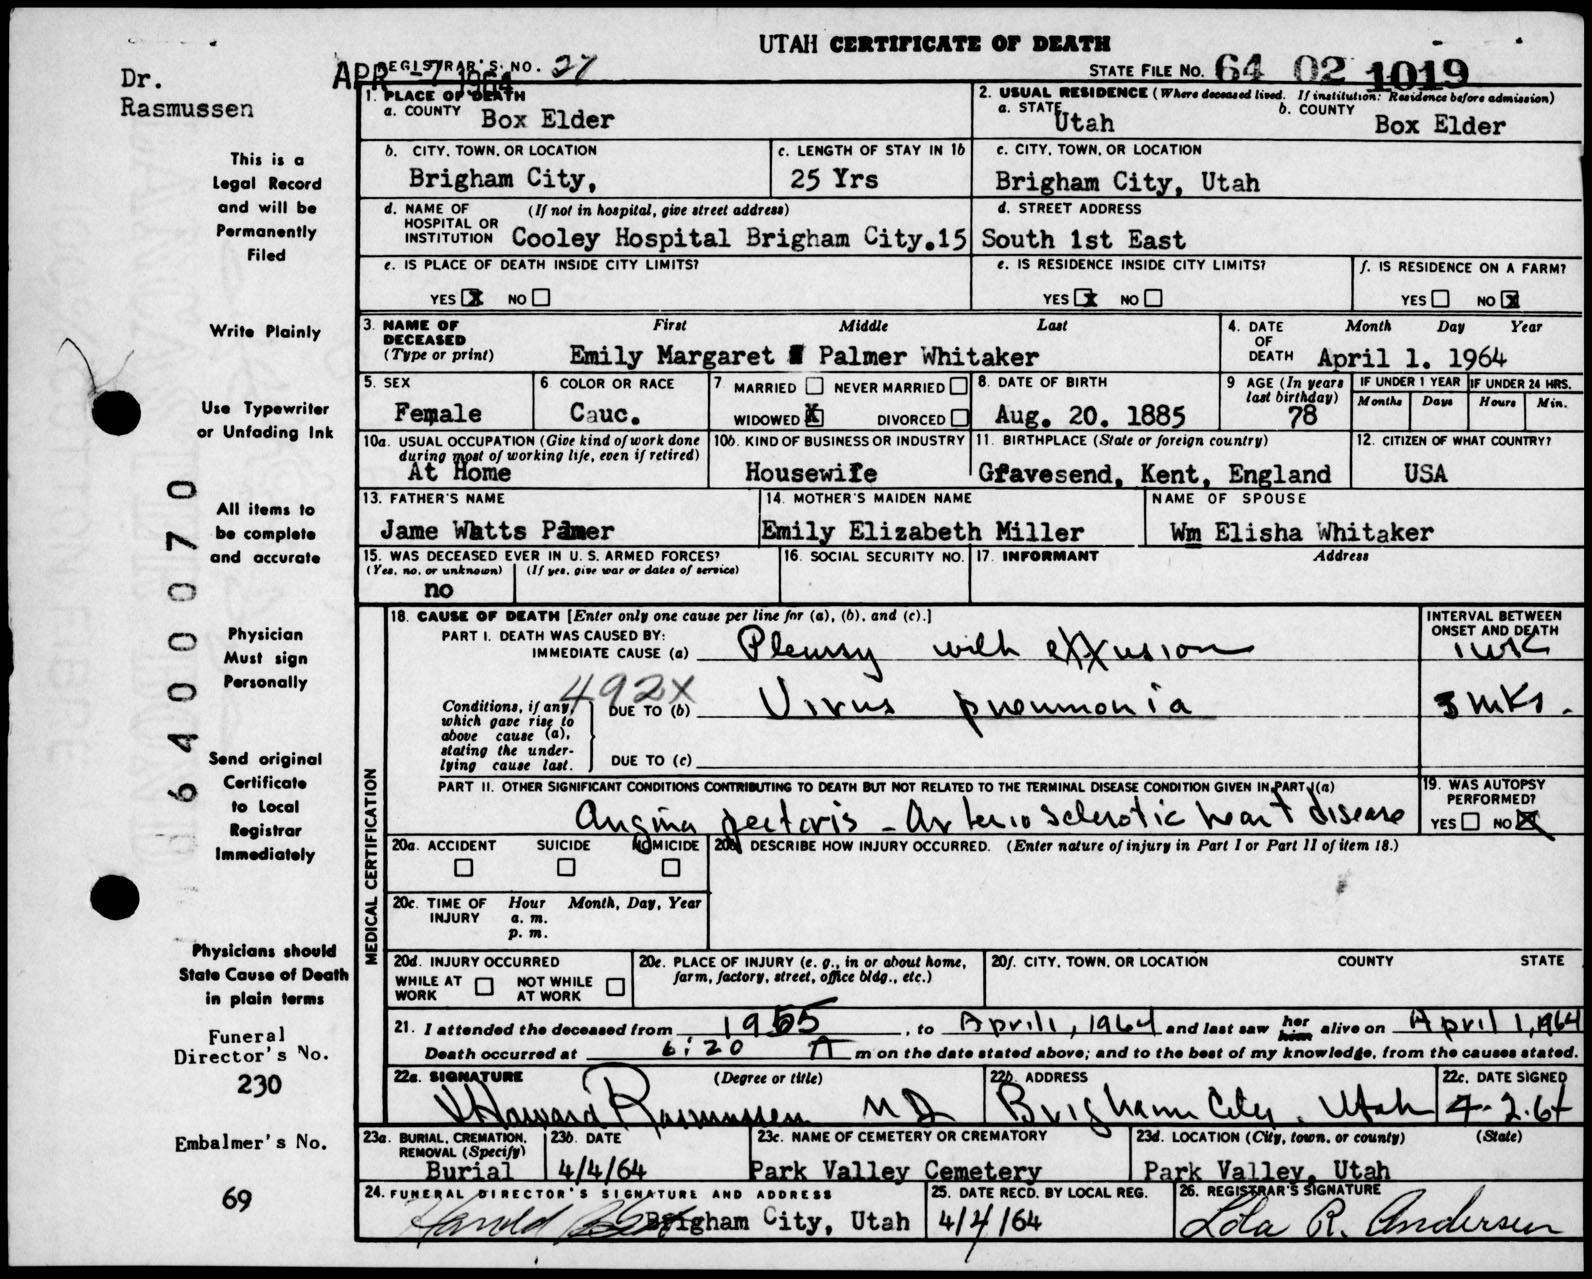 UTAH CERTIFICATE OF DEATH
REGISTRAR'S NO. 27
APR -7 1964
STATE FILE NO. 64 02 1019
Dr.
Rasmussen
This is a
Legal Record
and will be
Permanently
Filed
Write Plainly
Use Typewriter
or Unfading Ink
All items to
be complete
and accurate
Physician
Must sign
Personally
Send original
Certificate
to Local
Registrar
Immediately
Physicians should
State Cause of Death
in plain terms
Funeral
Director's No.
230
Embalmer's No.
69
0640070
1. PLACE OF DEATH
a. COUNTY Box Elder
2. USUAL RESIDENCE (Where deceased lived. If institution: Residence before admission)
a. STATE Utah b. COUNTY Box Elder
b. CITY, TOWN, OR LOCATION
Brigham City,
c. LENGTH OF STAY IN 1b
25 Yrs
c. CITY, TOWN, OR LOCATION
Brigham City, Utah
d. NAME OF HOSPITAL OR INSTITUTION (If not in hospital, give street address)
Cooley Hospital Brigham City.
d. STREET ADDRESS
15 South 1st East
e. IS PLACE OF DEATH INSIDE CITY LIMITS?
YES X NO
e. IS RESIDENCE INSIDE CITY LIMITS?
YES X NO
f. IS RESIDENCE ON A FARM?
YES NO X
3. NAME OF DECEASED (Type or print) First Middle Last
Emily Margaret Palmer Whitaker
4. DATE OF DEATH Month Day Year
April 1. 1964
5. SEX
Female
6 COLOR OR RACE
Cauc.
7 MARRIED NEVER MARRIED
WIDOWED X DIVORCED
8. DATE OF BIRTH
Aug. 20. 1885
9 AGE (In years last birthday)
78
IF UNDER 1 YEAR
Months Days
IF UNDER 24 HRS.
Hours Min.
10a. USUAL OCCUPATION (Give kind of work done during most of working life, even if retired)
At Home
10b. KIND OF BUSINESS OR INDUSTRY
Housewife
11. BIRTHPLACE (State or foreign country)
Gravesend, Kent, England
12. CITIZEN OF WHAT COUNTRY?
USA
13. FATHER'S NAME
Jame Watts Palmer
14. MOTHER'S MAIDEN NAME
Emily Elizabeth Miller
NAME OF SPOUSE
Wm Elisha Whitaker
15. WAS DECEASED EVER IN U. S. ARMED FORCES?
(Yes, no, or unknown) (If yes, give war or dates of service)
no
16. SOCIAL SECURITY NO.
17. INFORMANT Address
MEDICAL CERTIFICATION
18. CAUSE OF DEATH [Enter only one cause per line for (a), (b), and (c).]
PART I. DEATH WAS CAUSED BY:
IMMEDIATE CAUSE (a) Pleursy with effusion
INTERVAL BETWEEN ONSET AND DEATH
1 wk
Conditions, if any, which gave rise to above cause (a), stating the underlying cause last.
492X
DUE TO (b) Virus pneumonia
3 wks.
DUE TO (c)
PART II. OTHER SIGNIFICANT CONDITIONS CONTRIBUTING TO DEATH BUT NOT RELATED TO THE TERMINAL DISEASE CONDITION GIVEN IN PART I(a)
Angina pectoris - Arterio sclerotic heart disease
19. WAS AUTOPSY PERFORMED?
YES NO X
20a. ACCIDENT SUICIDE HOMICIDE
20b. DESCRIBE HOW INJURY OCCURRED. (Enter nature of injury in Part I or Part II of item 18.)
20c. TIME OF INJURY Hour Month, Day, Year
a. m.
p. m.
20d. INJURY OCCURRED
WHILE AT WORK NOT WHILE AT WORK
20e. PLACE OF INJURY (e. g., in or about home, farm, factory, street, office bldg., etc.)
20f. CITY, TOWN, OR LOCATION COUNTY STATE
21. I attended the deceased from 1955, to April 1, 1964 and last saw her him alive on April 1, 1964
Death occurred at 6:20 A m on the date stated above; and to the best of my knowledge, from the causes stated.
22a. SIGNATURE (Degree or title)
J Howard Rasmussen MD
22b. ADDRESS
Brigham City, Utah
22c. DATE SIGNED
4-2-64
23a. BURIAL, CREMATION, REMOVAL (Specify)
Burial
23b. DATE
4/4/64
23c. NAME OF CEMETERY OR CREMATORY
Park Valley Cemetery
23d. LOCATION (City, town, or county) (State)
Park Valley, Utah
24. FUNERAL DIRECTOR'S SIGNATURE AND ADDRESS
Harold Brigham City, Utah
25. DATE RECD. BY LOCAL REG.
4/4/64
26. REGISTRAR'S SIGNATURE
Lola R. Andersen